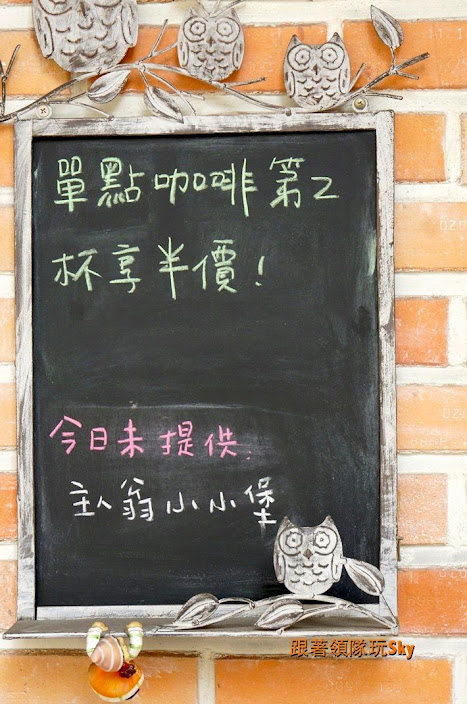 單點咖啡第2
杯享半價!
今日未提供.
主人翁小小堡
跟著領隊玩Sky